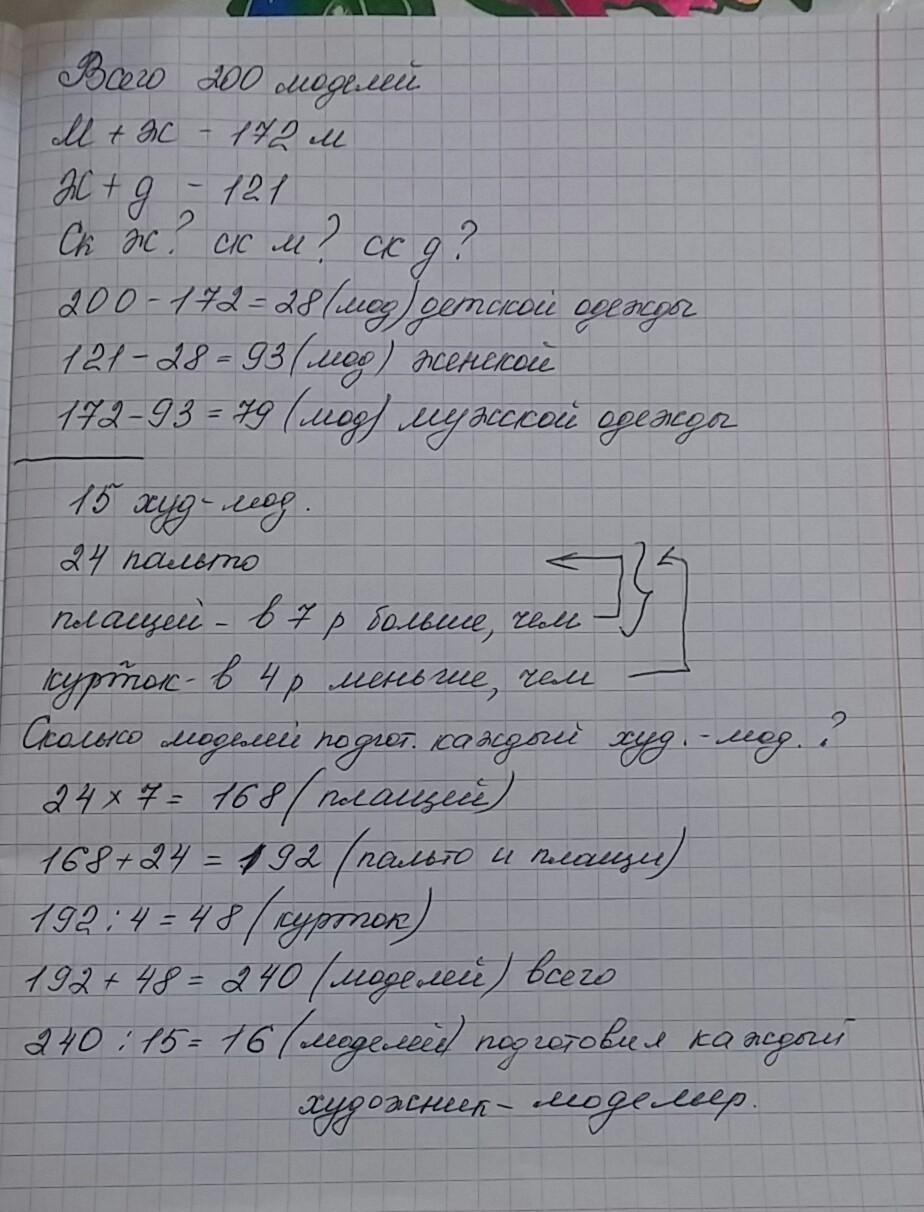 Всего 200 моделей
М + Ж - 172 м
Ж + д - 121
Ск ж? ск м? ск д?
200 - 172 = 28 (мод) детской одежды
121 - 28 = 93 (мод) женской
172 - 93 = 79 (мод) мужской одежды
15 худ-мод.
24 пальто
плащей - в 7 р больше, чем
курток - в 4 р меньше, чем
Сколько моделей подгот. каждый худ.-мод.?
24 × 7 = 168 (плащей)
168 + 24 = 192 (пальто и плащи)
192 : 4 = 48 (курток)
192 + 48 = 240 (моделей) всего
240 : 15 = 16 (моделей) подготовил каждый
художник - модельер.